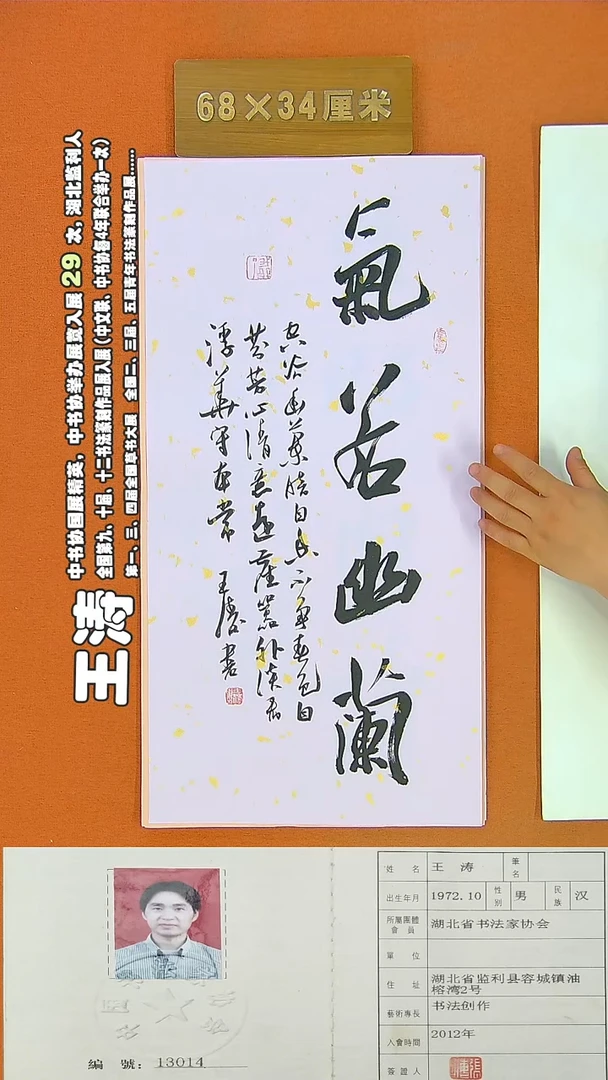 68×34厘米
中书协国展精英，中书协举办展赛入展 29 次，湖北监利人
全国第九、十届、十二书法篆刻作品展入展（中文联、中书协每4年联合举办一次）
第一、三、四届全国草书大展 全国二、三届、五届青年书法篆刻作品展......
王涛
氣若幽蘭
空谷幽蘭自香不爭春色自
芬芳心清意遠塵囂外淡看
浮華守本常 王濤書
編 號：13014
姓 名 王 涛 筆名
出生年月 1972.10 性別 男 民族 汉
所屬團體會員 湖北省书法家协会
單 位
住 址 湖北省监利县容城镇油榕湾2号
藝術專長 书法创作
入會時間 2012年
簽證人